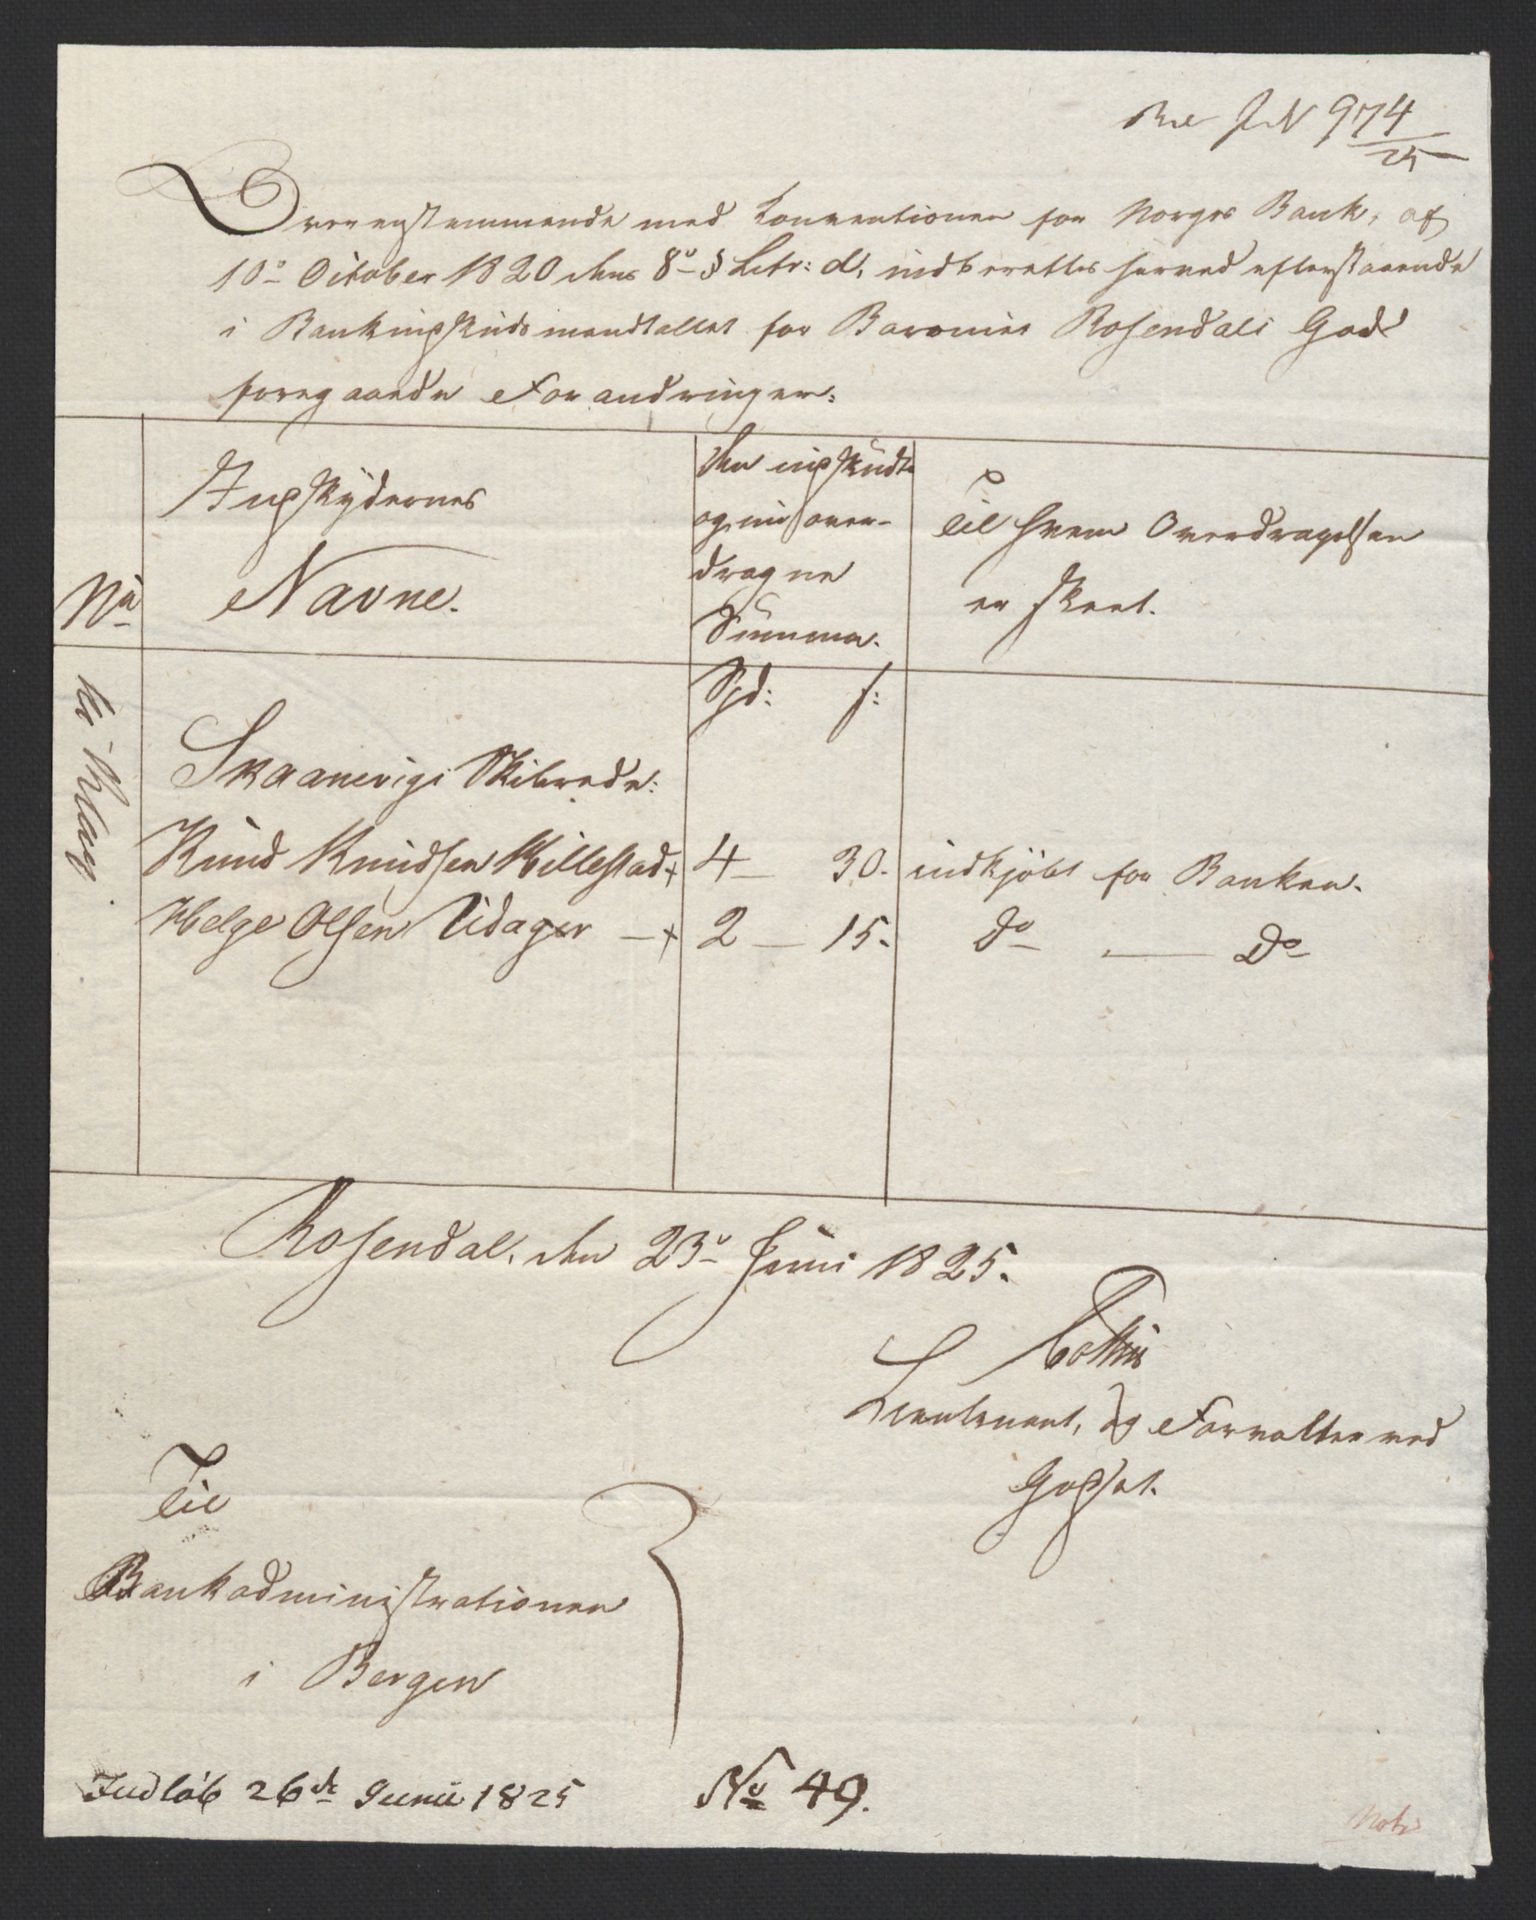 J N 974/25
Overenstemmende med Conventionen for Norges Bank, af
10de October 1820 dens 8de § Litr: d, indberettes herved efterstaaende
i Bankindskuds mandtallet for Baroniet Rosendals Gods
foregaaede Forandringer:
No
Indskydernes
Navne.
den indskudte
og nu over-
dragne
Summa.
Til hvem Overdragelsen
er skeet.
Spd: s:
Skaanevigs Skibrede:
Knud Knudsen Millestad + 4 — 30. indkjöbt for Banken.
Helge Olsen Udager — + 2 — 15. do — Do
Rosendal, den 23de Juni 1825.
Lieutenant, og Forvalter ved
Godset.
Til
Bankadministrationen
i Bergen
Indløb 26de Junii 1825
No 49.
Not: